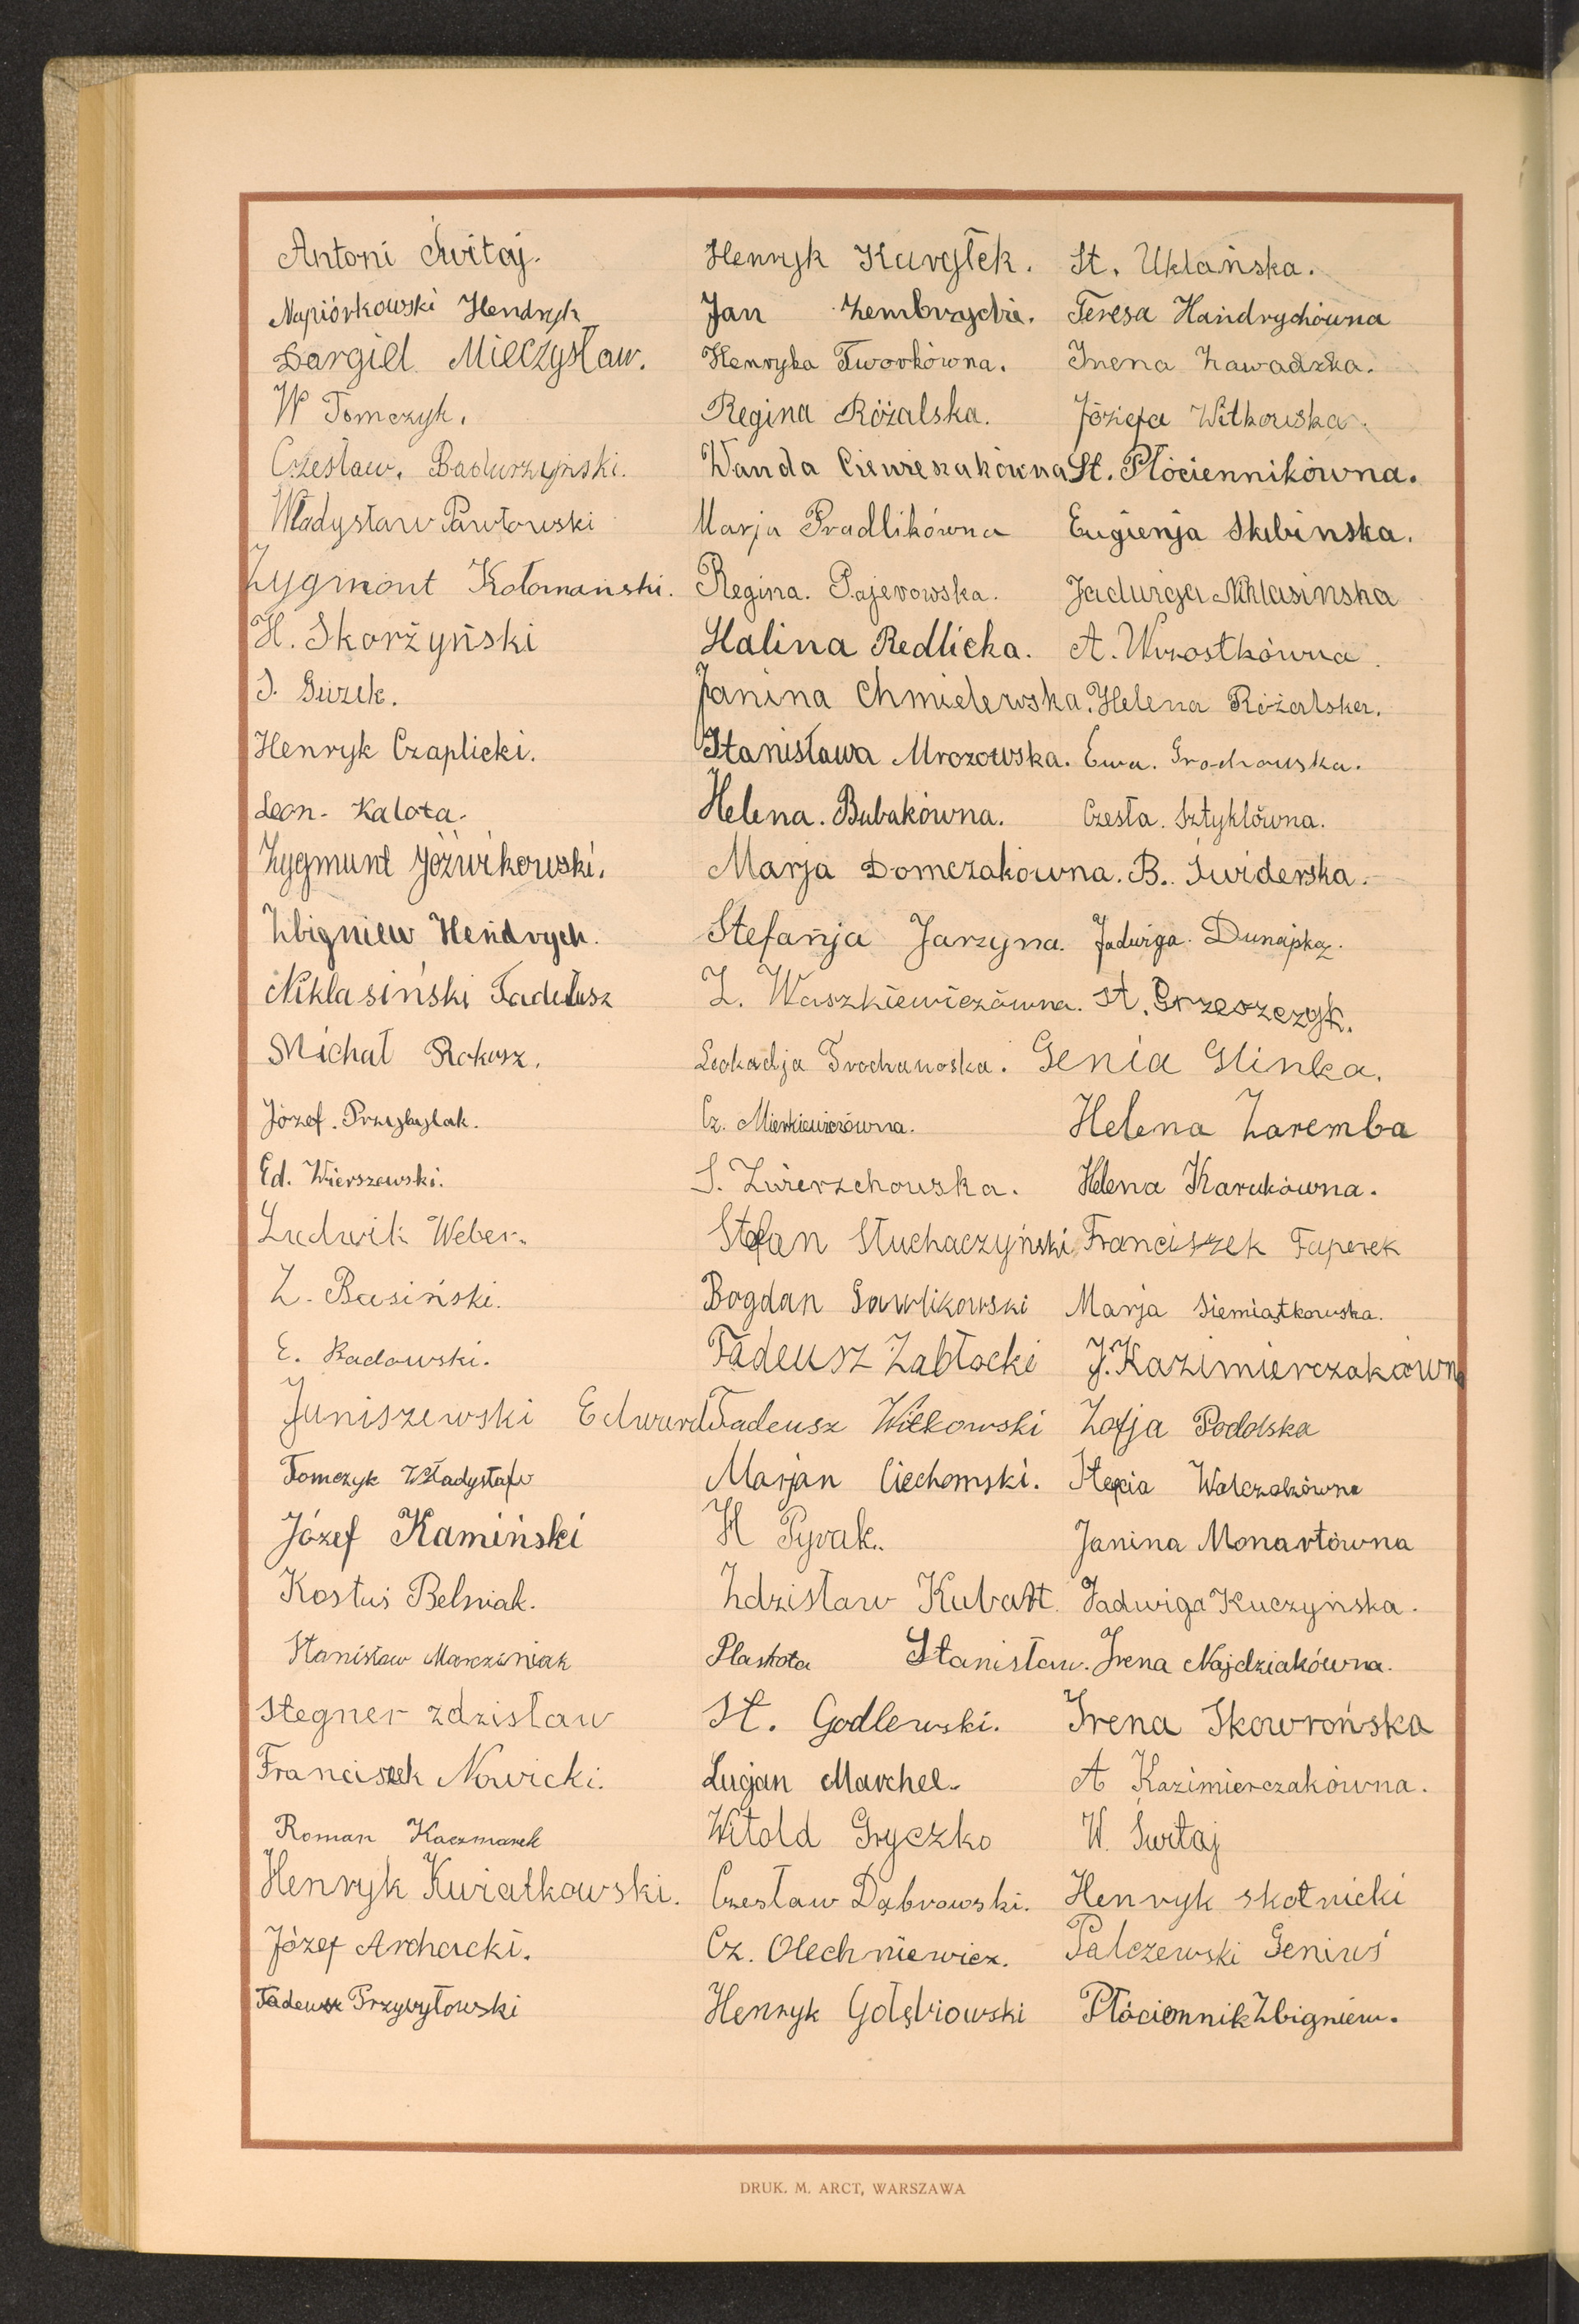 Antoni Świtaj.
Napiórkowski Hendryk
Dargiel Mieczysław.
W Tomczyk.
Czesław. Badurzyński.
Władysław Pawłowski
Zygmont Kołomański.
H. Skorżyński
J. Guzik.
Henryk Czaplicki.
Leon. Kalota.
Zygmunt Jóżwikowski.
Zbigniew Hendrych.
Niklasiński Tadeusz
Michał Rokosz.
Józef. Przybylak.
Ed. Wierszewski.
Ludwik Weber.
Z. Basiński.
E. Radowski.
Juniszewski Edward
Tomczyk Władysław
Józef Kamiński
Kostuś Belniak.
Stanisław Marciniak
Stegner Zdzisław
Franciszek Nowicki.
Roman Kaczmarek
Henryk Kwiatkowski.
Józef Archacki.
Tadeusz Przybyłowski
Henryk Kurylek.
Jan
Henryka Tworkówna.
Regina Różalska.
Wanda
Marja Pradlikówna
Regina. Pajerowska.
Halina Redlicka.
Janina Chmielewska.
Stanisława Mrozowska.
Helena. Bubakówna.
Marja Domczakówna.
Stefanja Jarzyna.
Z. Waszkiewiczówna.
Leokadja
Cz. Mierkiewiczówna.
S. Zwierzchowska.
Stefan Słuchaczyński
Bogdan Gawlikowski
Tadeusz Zabłocki
Tadeusz Witkowski
Marjan Ciechomski.
H Pyrak.
Zdzisław Kubatt.
Plaskota Stanisław.
St. Godlewski.
Lucjan Marchel.
Witold Gryczko
Czesław Dąbrowski.
Cz. Olechniewicz.
Henryk Gołębiowski
St. Uklańska.
Teresa Handrychówna
Irena Zawadzka.
Józiefa Witkowska.
St. Płóciennikówna.
Eugienja Skibinska.
Jadwiga Niklasinska
A. Wzrostkówna.
Helena Różalska.
Ewa. Grochowska.
Czesła. Sztyklówna.
B. Świderska.
Jadwiga. Dunajska.
St. Grzeszczyk.
Genia Glinka.
Helena Zaremba
Helena Karukówna.
Franciszek Faperek
Marja Siemiątkowska.
J. Kazimierczakówna
Zofja Podolska
Stefcia Walczakówna
Janina Monartówna
Jadwiga Kuczyńska.
Irena Najdziakówna.
Irena Skowrońska
A Kazimierczakówna.
W. Świtaj
Henryk Skotnicki
Palczewski Geniuś
Płóciennik Zbigniew.
DRUK. M. ARCT, WARSZAWA